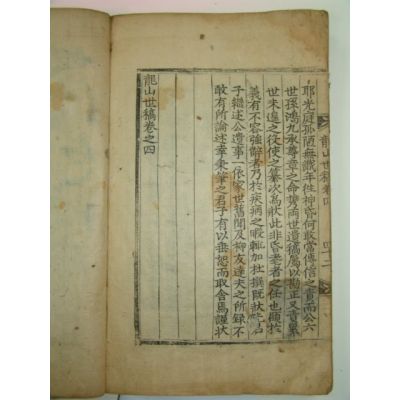 龍山世稿卷四 四十二
耶光庭孤陋無識年徃神昏何敢當傳信之責而公六
世孫鴻九承尊章之命贄兩世遺稿屬以勘正又責累
世未遑之役使之纂次爲狀此非昏耄者之任也顧於
義有不容強辭者乃於疾病之暇輒加杜撰旣狀
子繼述公遺事一依家世舊聞及柳友達夫之所錄不
敢有所論述幸秉筆之君子有以垂恕而取舍焉謹狀
龍山世稿卷之四